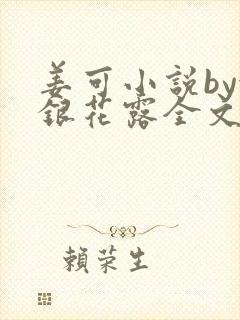 姜可小説by
銀花露全文
賴荣生